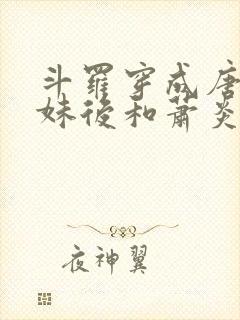 斗羅穿成唐
妹後和蕭炎
夜神翼